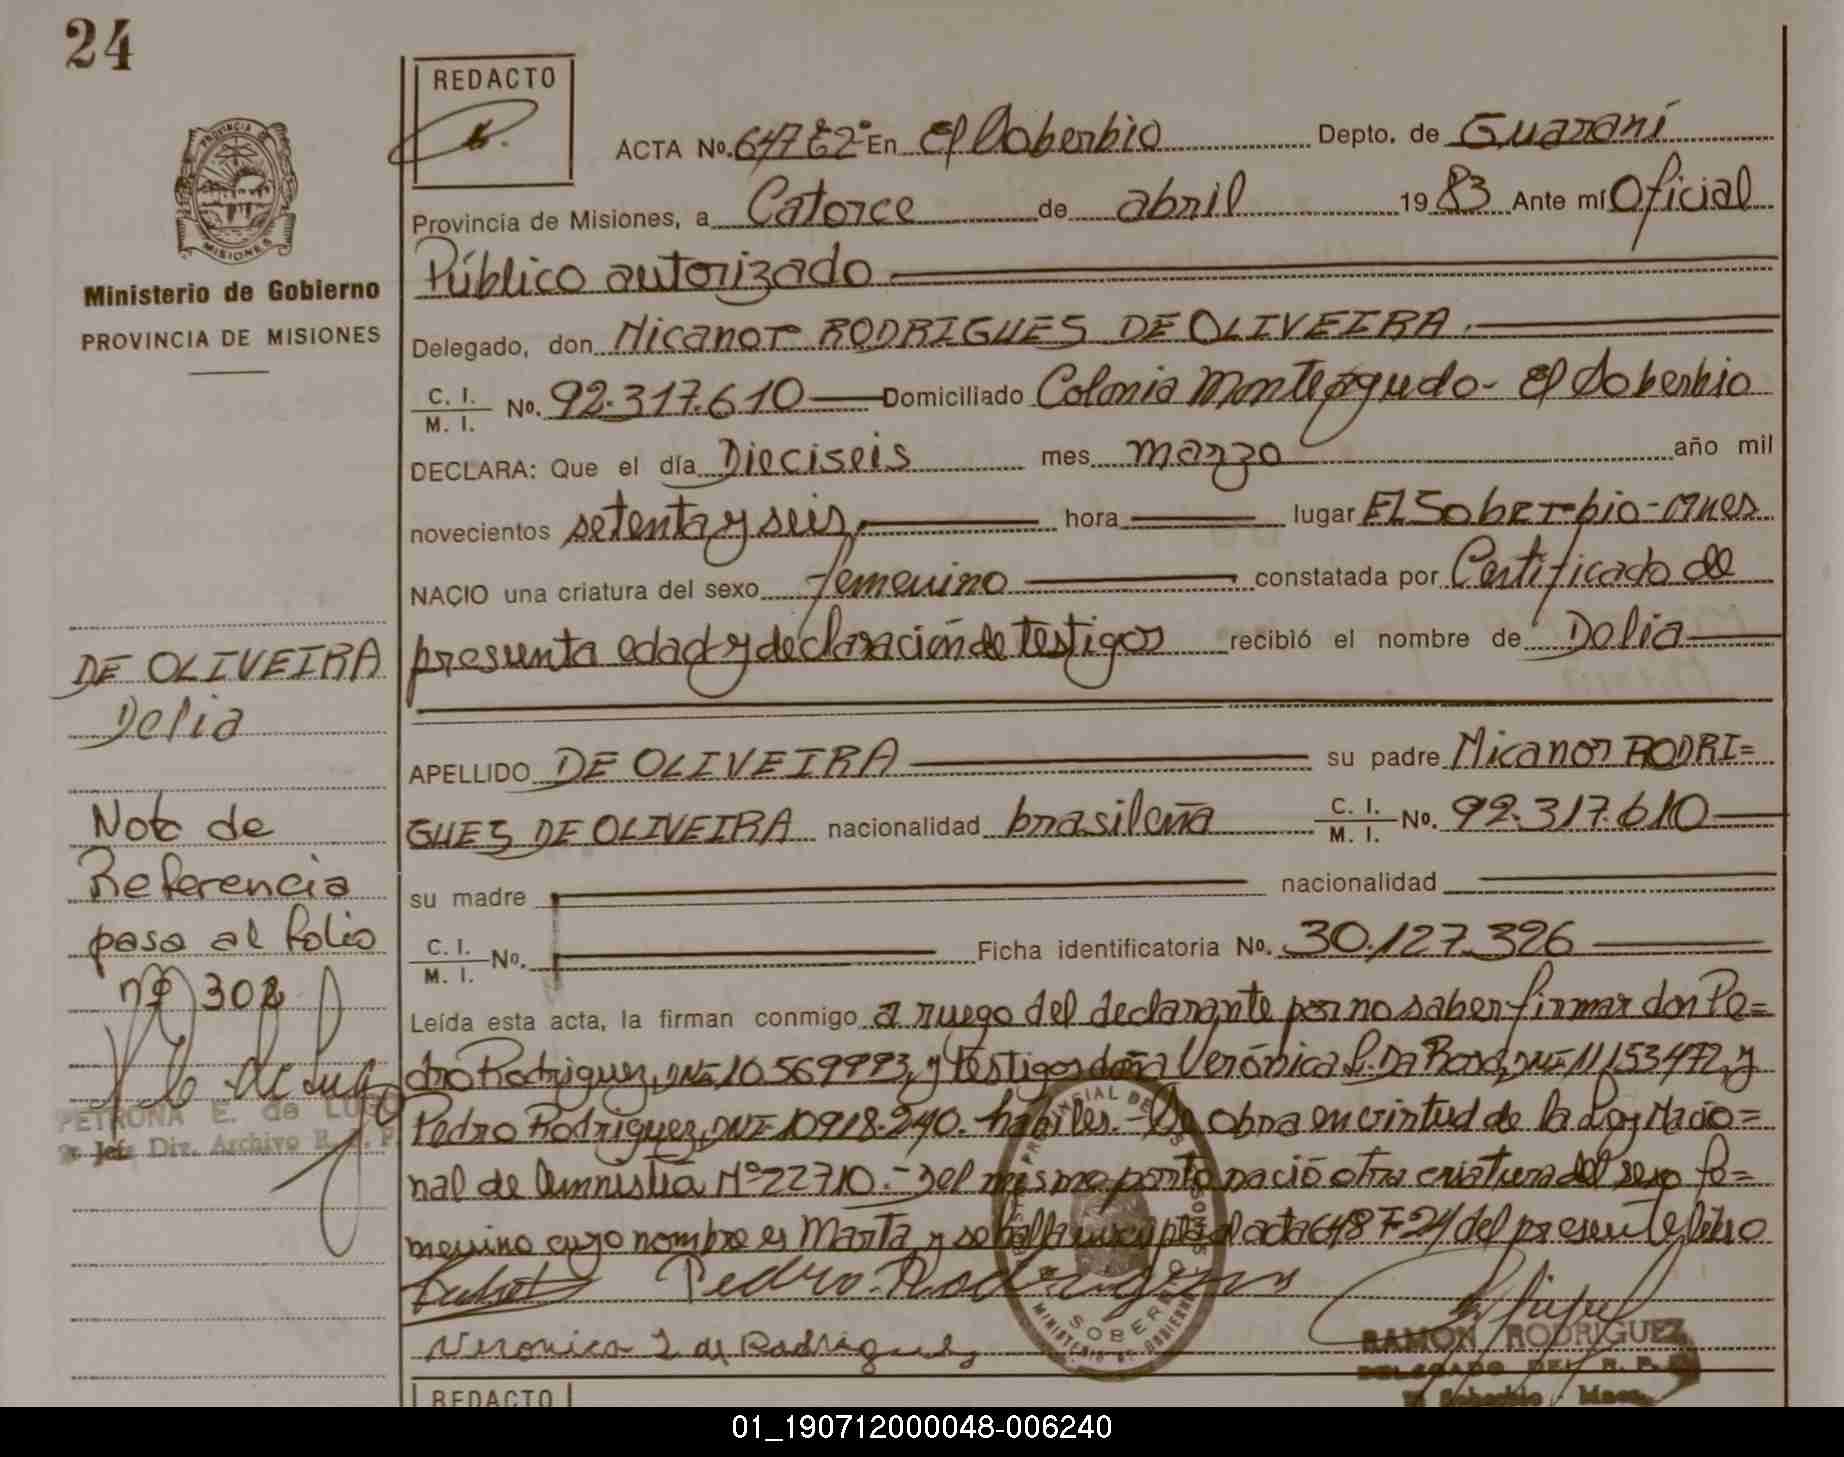 24
REDACTO
ACTA No. 647 E2º En El Soberbio Depto. de Guaraní
Provincia de Misiones, a Catorce de abril 1983 Ante mí Oficial
Público autorizado
PROVINCIA DE
MISIONES
Ministerio de Gobierno
PROVINCIA DE MISIONES
Delegado, don Nicanor RODRIGUES DE OLIVEIRA.
C. I.
M. I. No. 92.317.610 Domiciliado Colonia Monteagudo - El Soberbio
DECLARA: Que el día Dieciseis mes marzo año mil
novecientos setenta y seis, hora lugar El Soberbio - Mnes
NACIO una criatura del sexo femenino constatada por Certificado de
presunta edad y declaración de testigos recibió el nombre de Delia
DE OLIVEIRA
Delia
APELLIDO DE OLIVEIRA su padre Nicanor RODRI=
GUES DE OLIVEIRA nacionalidad brasileña C. I.
M. I. No. 92.317.610
su madre nacionalidad
C. I.
M. I. No. Ficha identificatoria No. 30.127.326
Nota de
Referencia
pasa al folio
nº 302
PETRONA E. de LUGO
Jefe Div. Archivo R. P.
Leída esta acta, la firman conmigo a ruego del declarante por no saber firmar don Pe=
dro Rodriguez, DNI 10.569993, y testigos doña Verónica L. Da Rosa, DNI 11153472, y
Pedro Rodriguez, DNI 10918.240. habiles. - Se obra en virtud de la Ley Nacio=
nal de Amnistía Nº 22710. - Del mismo parto nació otra criatura del sexo fe=
menino cuyo nombre es Marta y se halla inscripta al acta 648 F-24 del presente libro
Pedro Rodriguez
Veronica L de Rodriguez
SOBERBIO
MINISTERIO DE GOBIERNO
RAMON RODRIGUEZ
DELEGADO DEL R. P.
El Soberbio - Mnes.
REDACTO
01_190712000048-006240